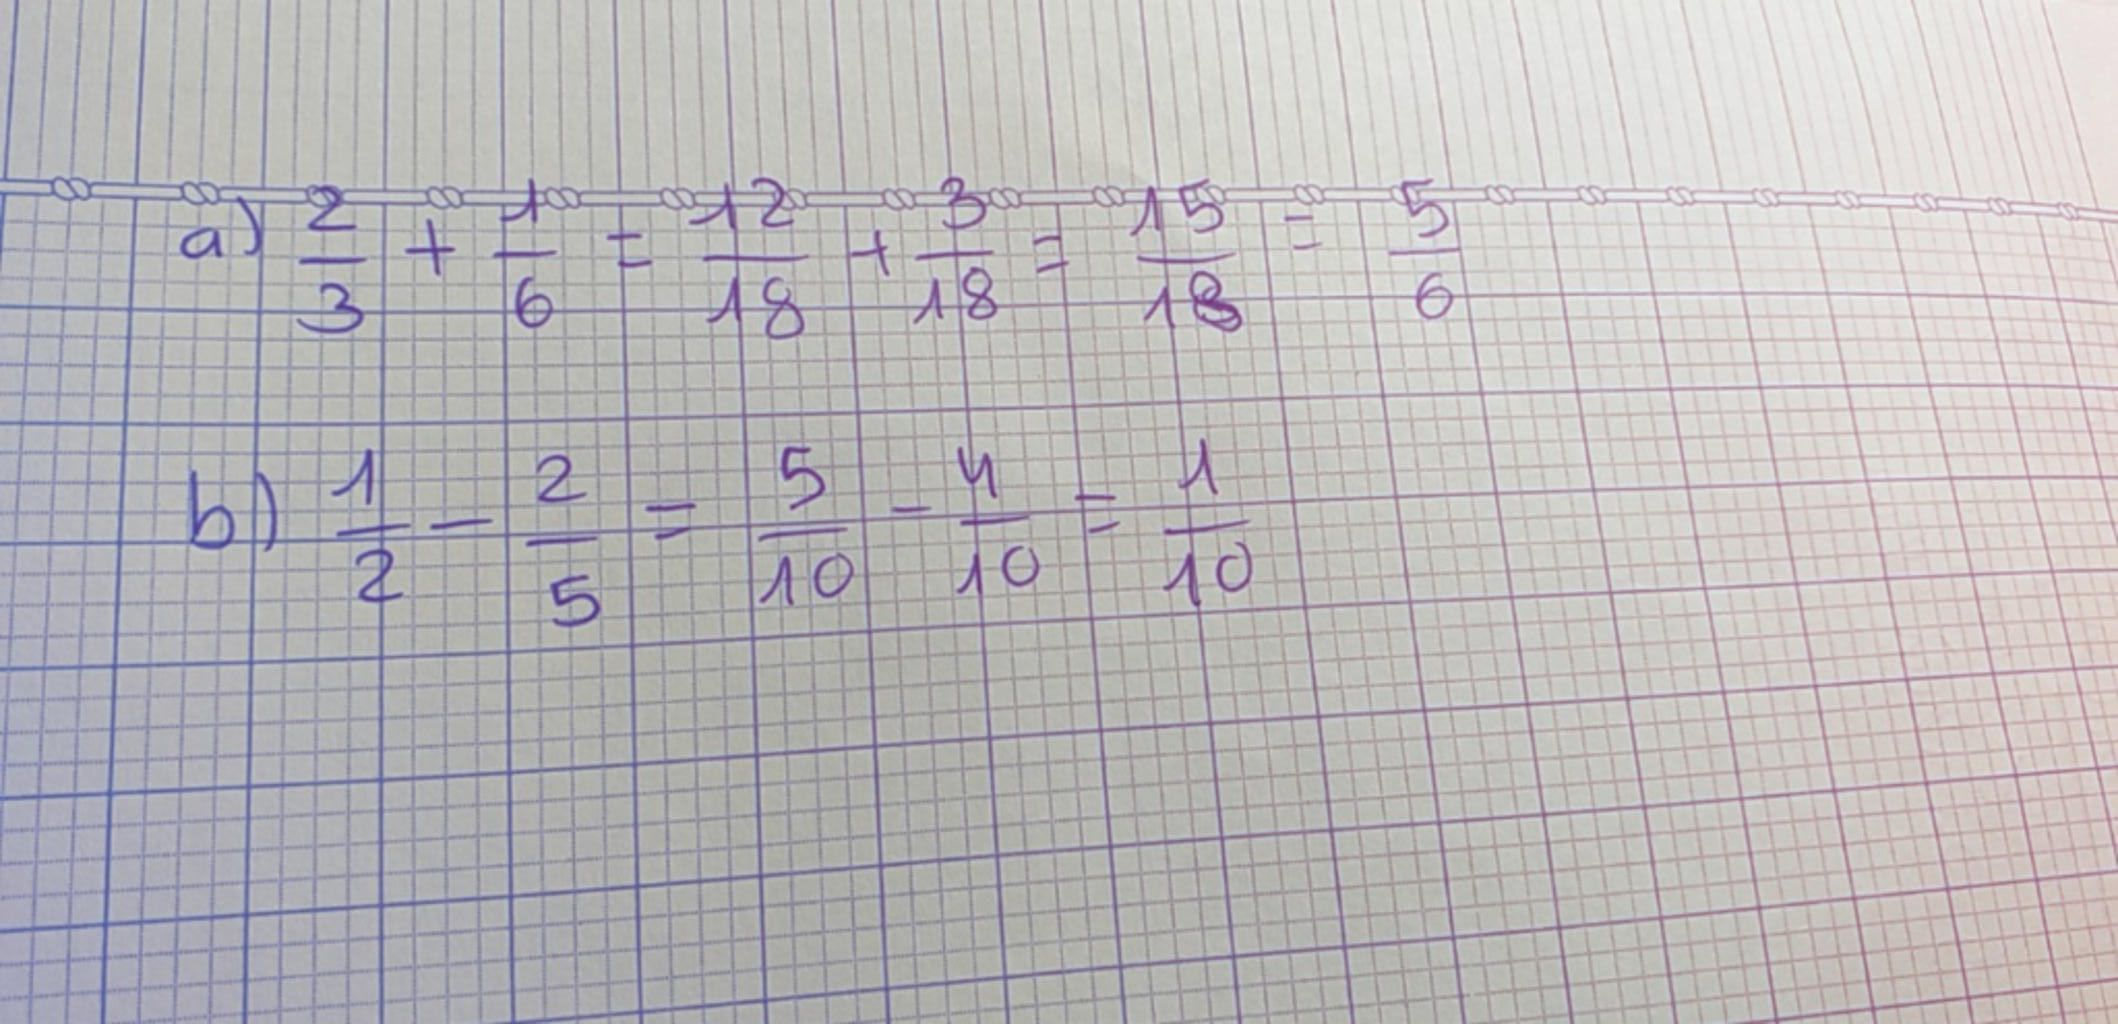 a) 2/3 + 1/6 = 12/18 + 3/18 = 15/18 = 5/6
b) 1/2 - 2/5 = 5/10 - 4/10 = 1/10